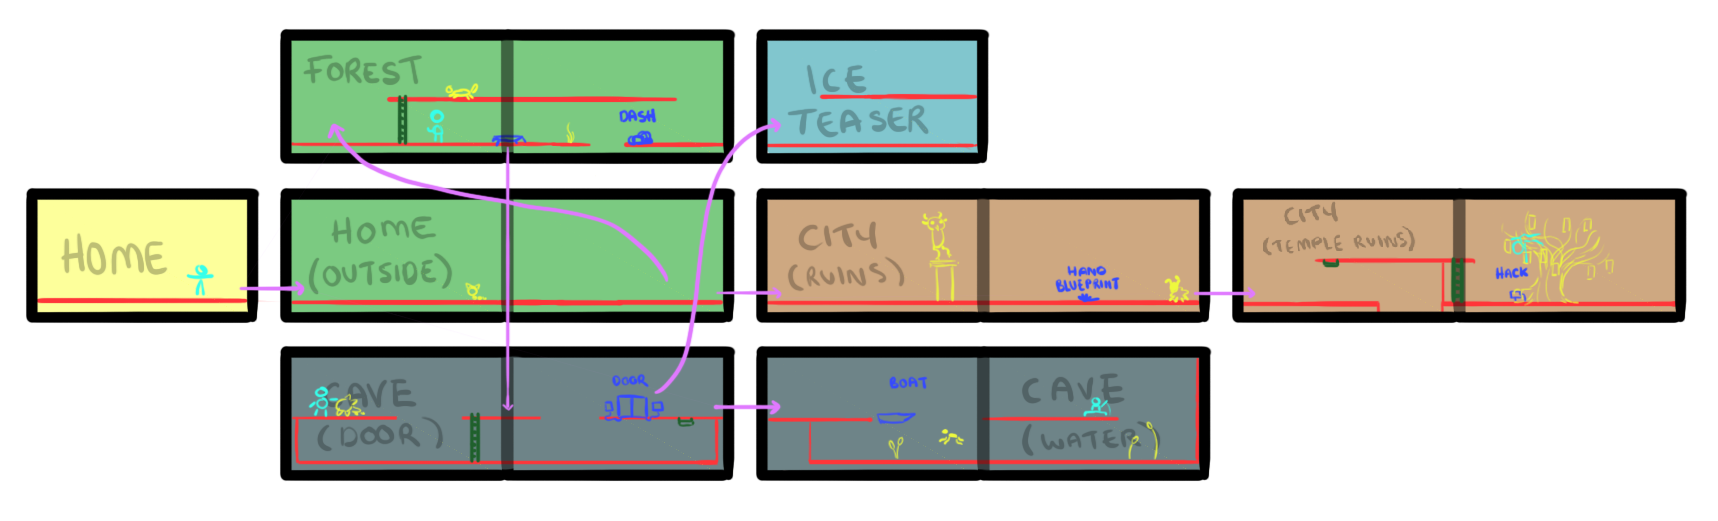 FOREST
DASH
ICE
TEASER
HOME
HOME
(OUTSIDE)
CITY
(RUINS)
HAND
BLUEPRINT
CITY
(TEMPLE RUINS)
HACK
CAVE
(DOOR)
DOOR
BOAT
CAVE
(WATER)